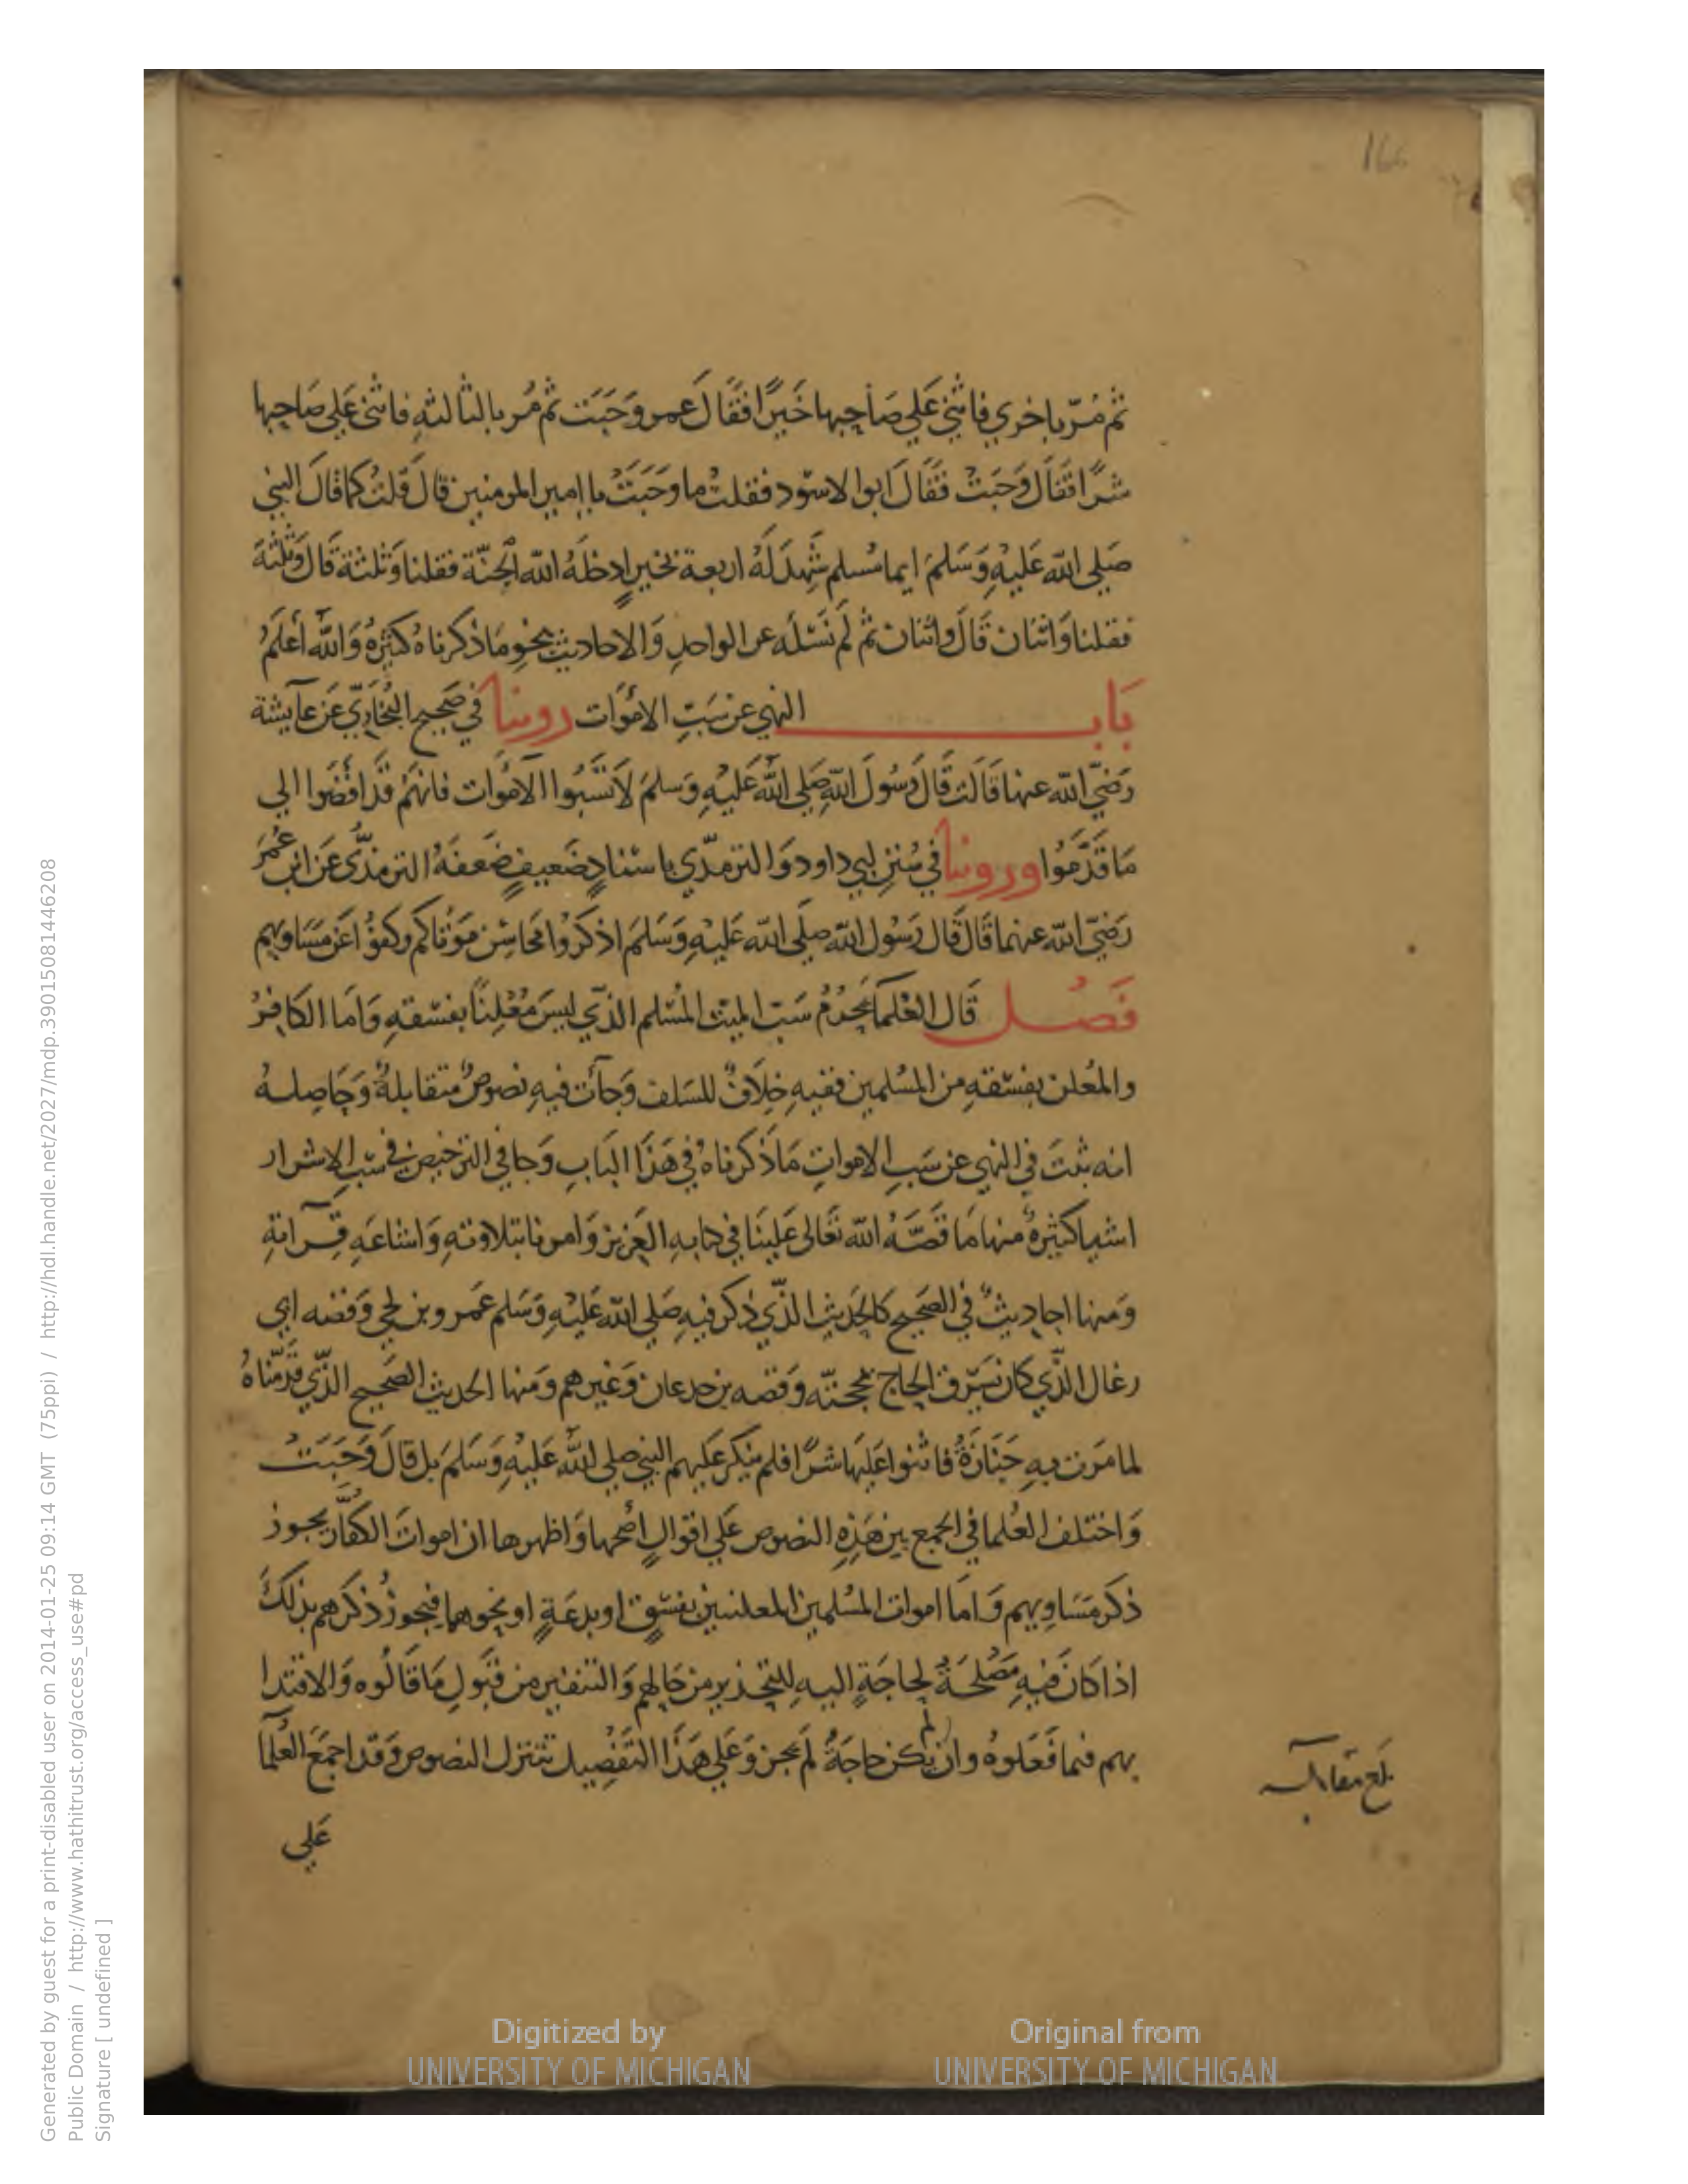 166
ثم مُرّ باخري فاثني علي صَاحِبها خَيرًا فقَال عمر وَجَبَت ثم مُر بالثالثهِ فاثني علي صَاحِبها
شرًا فقَالَ وَجَبَتْ فقَالَ ابوا الاسوَد فقلتُ ما وَجَبَتْ يا امير المومنين قالَ قلتُ كما قالَ النبي
صَلي الله عَليهِ وَسَلمَ ايما مُسلم شَهِدَ لَهُ اربعة بخيرٍ ادخلَهُ الله الجنّة فقلنا وَثلثة قَالَ وَثلثة
فقلنا وَاثنان قَالَ واثنان ثم لَم نَسئلَه عن الواحدِ وَالاحاديث بنحوِ مَا ذكرناهُ كثيرةٌ وَالله أعلَمُ
بَابـــ النهي عن سَبّ الاموَات روينا في صَحيح البُخاريّ عَن عَايشة
رَضيَ الله عنها قَالَت قَالَ رَسُولَ اللهِ صَلي الله عَليهِ وَسلمَ لَا تَسُبّوا الاموَات فانهُم قَد افضَوا الي
مَا قَدَّمُوا وروينا في سُنن ابي داود وَالترمذّي باسنادٍ ضَعيفٍ ضَعفهُ الترمذّي عَن ابن عُمَرَ
رَضيَ الله عنهما قَالَ قَال رَسُول الله صلَي الله عَليهِ وَسَلمَ اذكرُوا محَاسِن مَوتاكم وكفوُّا عَن مَسَاويهم
فَصـل قَال العُلمآ يَحرُمُ سَبّ الميت المُسْلم الذّي ليسَ مُعْلِنًا بفسقهِ وَامَا الكَافِرُ
والمُعلن بفسقهِ من المسُلمين ففيهِ خِلَافٌ للسَلف وَجآت فيهِ نصُوصٌ متقابلةٌ وَحَاصِلـهُ
انه ثبتَ في النهي عن سَبِ الاموَاتِ مَا ذَكرناهُ في هَذَا البَابِ وَجا في الترخيص في سَبّ الاشرار
اشيا كثيرةٌ منها مَا قَصَّهُ الله تعَالى عَلينَا في كتابهِ العَزيز وَامرنا بتلاوتهِ وَاشاعَهِ قِـرآتهِ
وَمنها احاديثٌ في الصَحيح كالحَديثِ الذّي ذكر فيهِ صَلي الله عَليْهِ وَسَلم عَمرو بن لحي وَقصه ابي
رغال الذّي كان يَسّرق الحاج بمحجنّه وَقصه بن جدعان وَغيرهم وَمنها الحديث الصَحيح الذّي قدّمناهُ
لما مَرت بهِ جَنَازةٌ فاثنوا عَليهَا شرًا فلم ينكر عَليهم النبي صلي الله عَليْهِ وَسَلمَ بل قالَ وَجَبَتْ
وَاختلف العُلما في الجمع بين هَذِهِ النصُوص عَلي اقوالٍ أصَحها وَاظهرها ان امواتَ الكفّار يجـوز
ذكر مَسَاويهم وَامَا اموات المسُلمين المعلنين بفسّقٍ او بدعَةٍ او نحوهما فيجوزُ ذكرهم بذلكَ
اذا كَانَ فيهِ مَصْلحَةٌ لحاجَةٍ اليـهِ للتحذير من حَالهِم وَالتنفير من قبَول مَا قَالُوه وَالاقتدا
بهم فيما فَعَلوهُ وان لم يكن حاجَةٌ لَم يجز وَعَلي هَذَا التَفصِيل تتنزل النصوص وَقد اجمَعَ العُلمآ
علَي
بلغ مقابلـه
Generated by guest for a print-disabled user on 2014-01-25 09:14 GMT (75ppi) / http://hdl.handle.net/2027/mdp.39015081446208
Public Domain / http://www.hathitrust.org/access_use#pd
Signature [ undefined ]
Digitized by
UNIVERSITY OF MICHIGAN
Original from
UNIVERSITY OF MICHIGAN